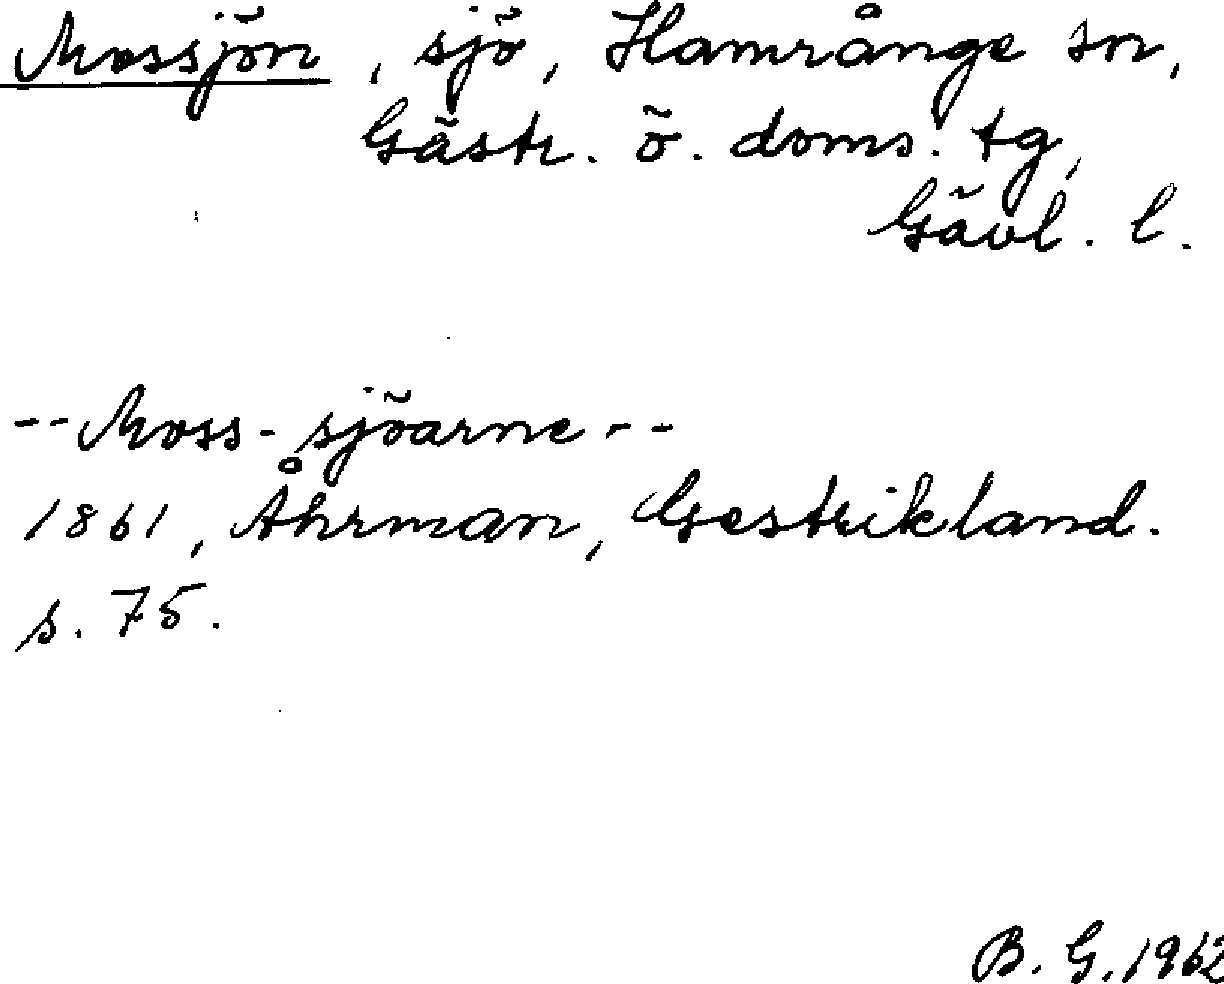 Mossjön, sjö, Hamrånge sn,
Gästr. ö. doms. tg,
Gävl. l.
-- Moss-sjöarne --
1861, Åhrman, Gestrikland.
s. 75.
B. G. 1962